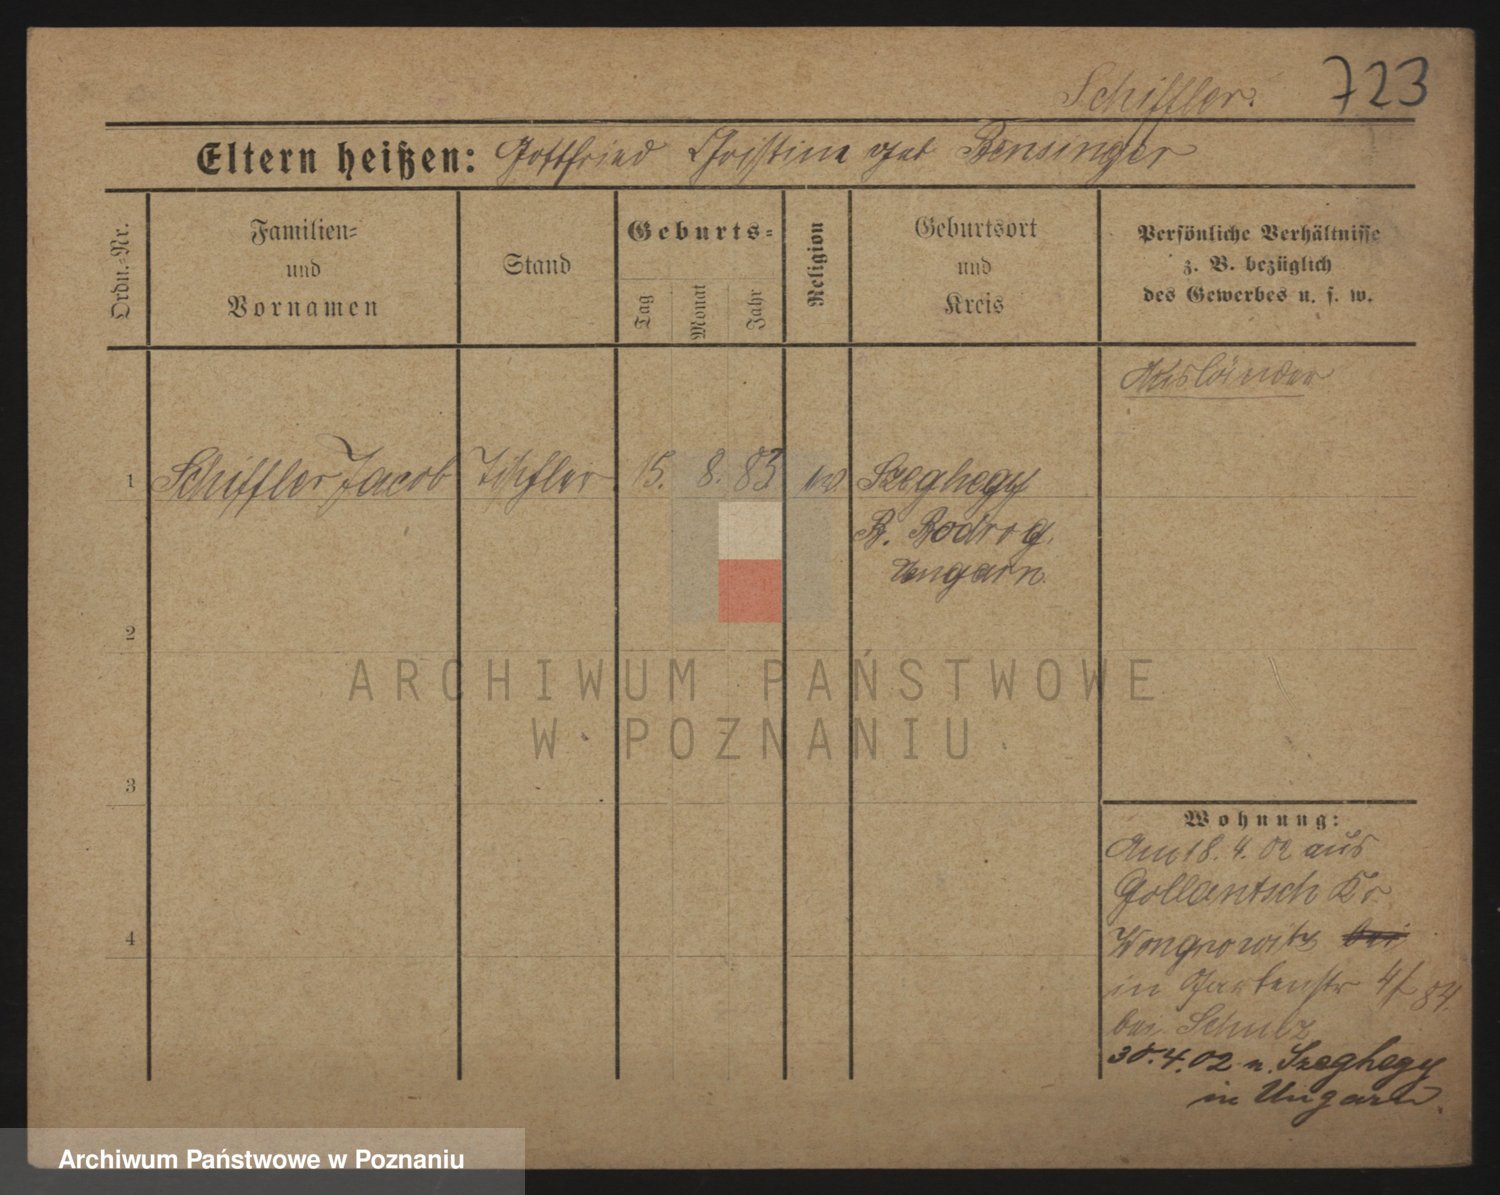 Schiffler.
723
Eltern heißen: Gottfried Christine geb Bensinger
Ordn.-Nr.
Familien-
und
Vornamen
Stand
Geburts-
Tag
Monat
Jahr
Religion
Geburtsort
und
Kreis
Persönliche Verhältnisse
z. B. bezüglich
des Gewerbes u. s. w.
Ausländer
1 Schiffler Jacob Tischler 15. 8. 83 ev Szeghegy
B. Bodrog.
Ungarn
2
3
4
Wohnung:
Am 18. 4. 02 aus
Gollantsch Kr
Wongrowitz bei
in Gartenstr 4
bei Schulz
30.4.02 n. Szeghegy
in Ungarn.
ARCHIWUM PAŃSTWOWE
W POZNANIU
Archiwum Państwowe w Poznaniu